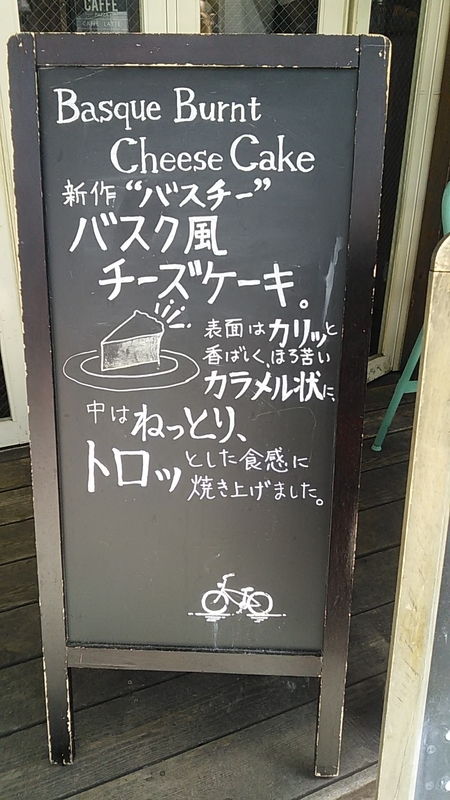 CAFFE
CAFFE LATTE
Basque Burnt
Cheese Cake
新作“バスチー”
バスク風
チーズケーキ。
表面はカリッと
香ばしく、ほろ苦い
カラメル状に、
中はねっとり、
トロッとした食感に
焼き上げました。